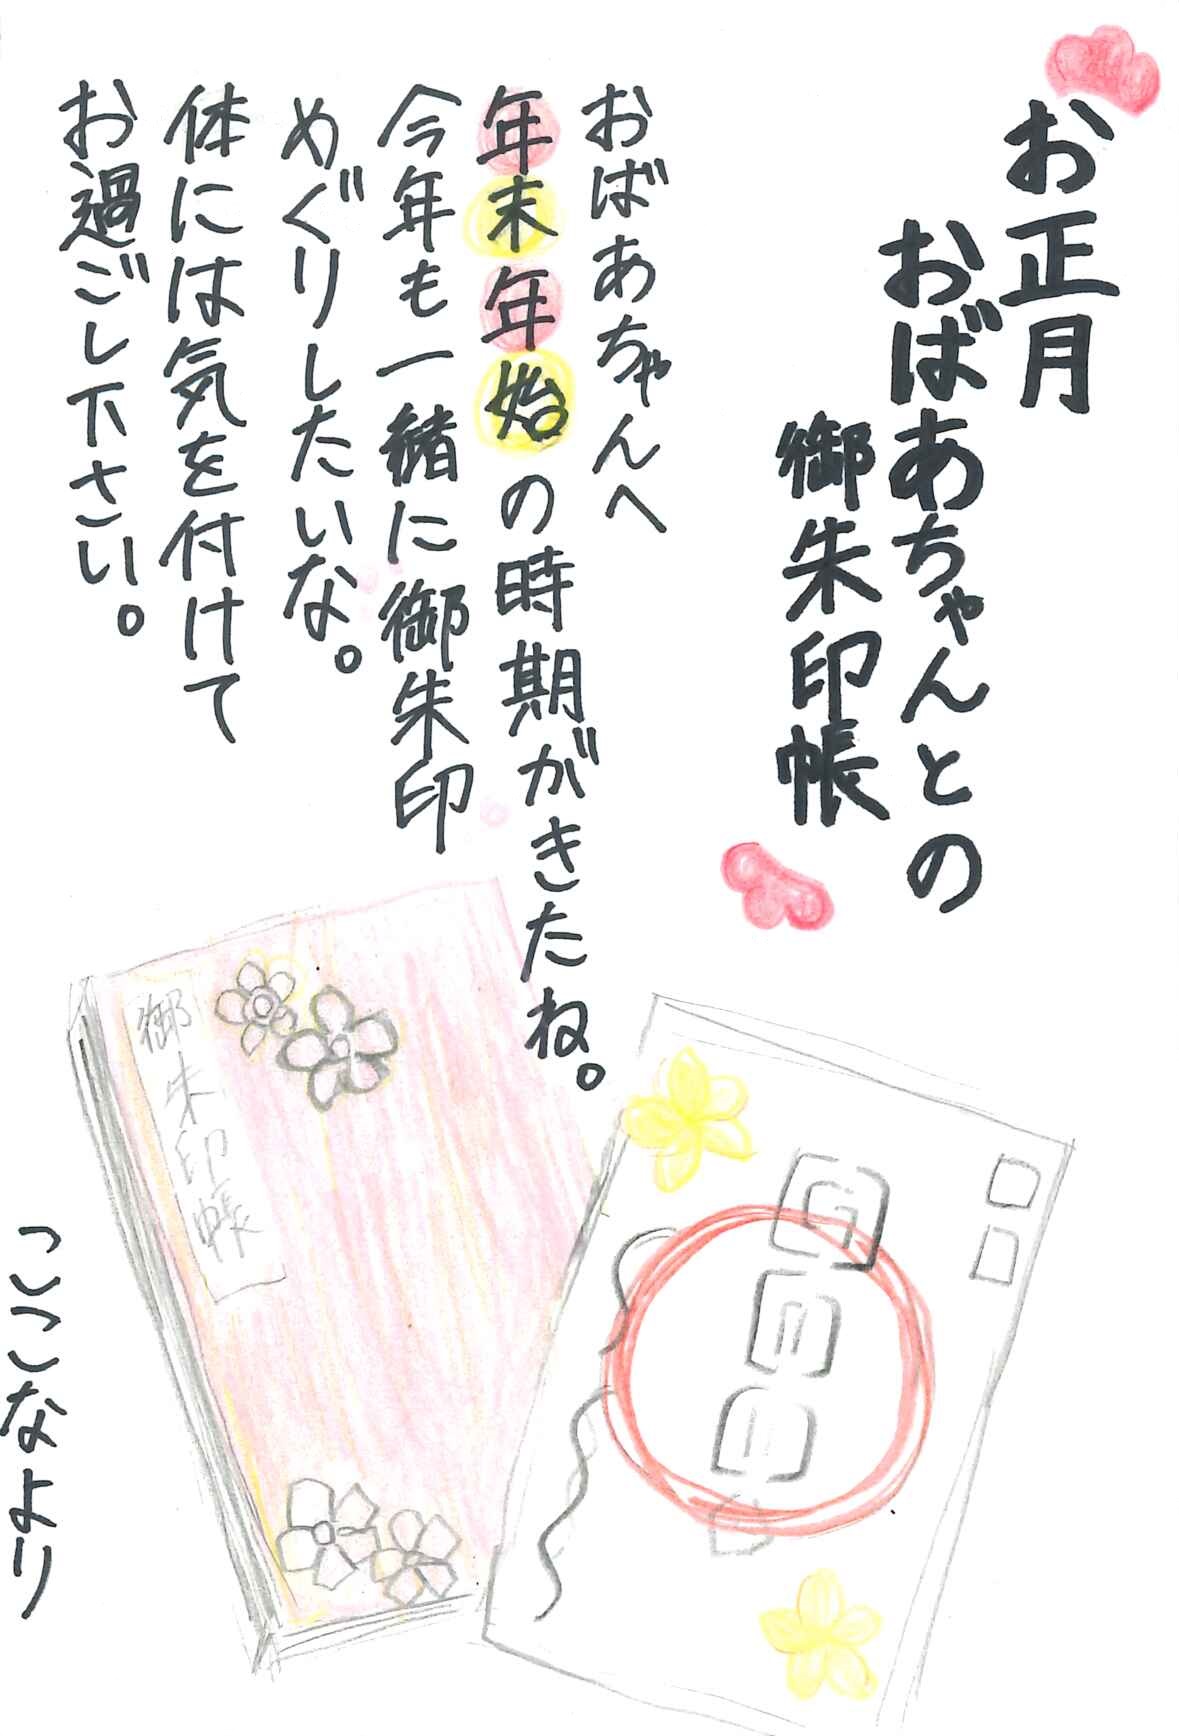 お正月
おばあちゃんとの
御朱印帳
おばあちゃんへ
年末年始の時期がきたね。
今年も一緒に御朱印
めぐりしたいな。
体には気を付けて
お過ごし下さい。
ここなより
御朱印帳